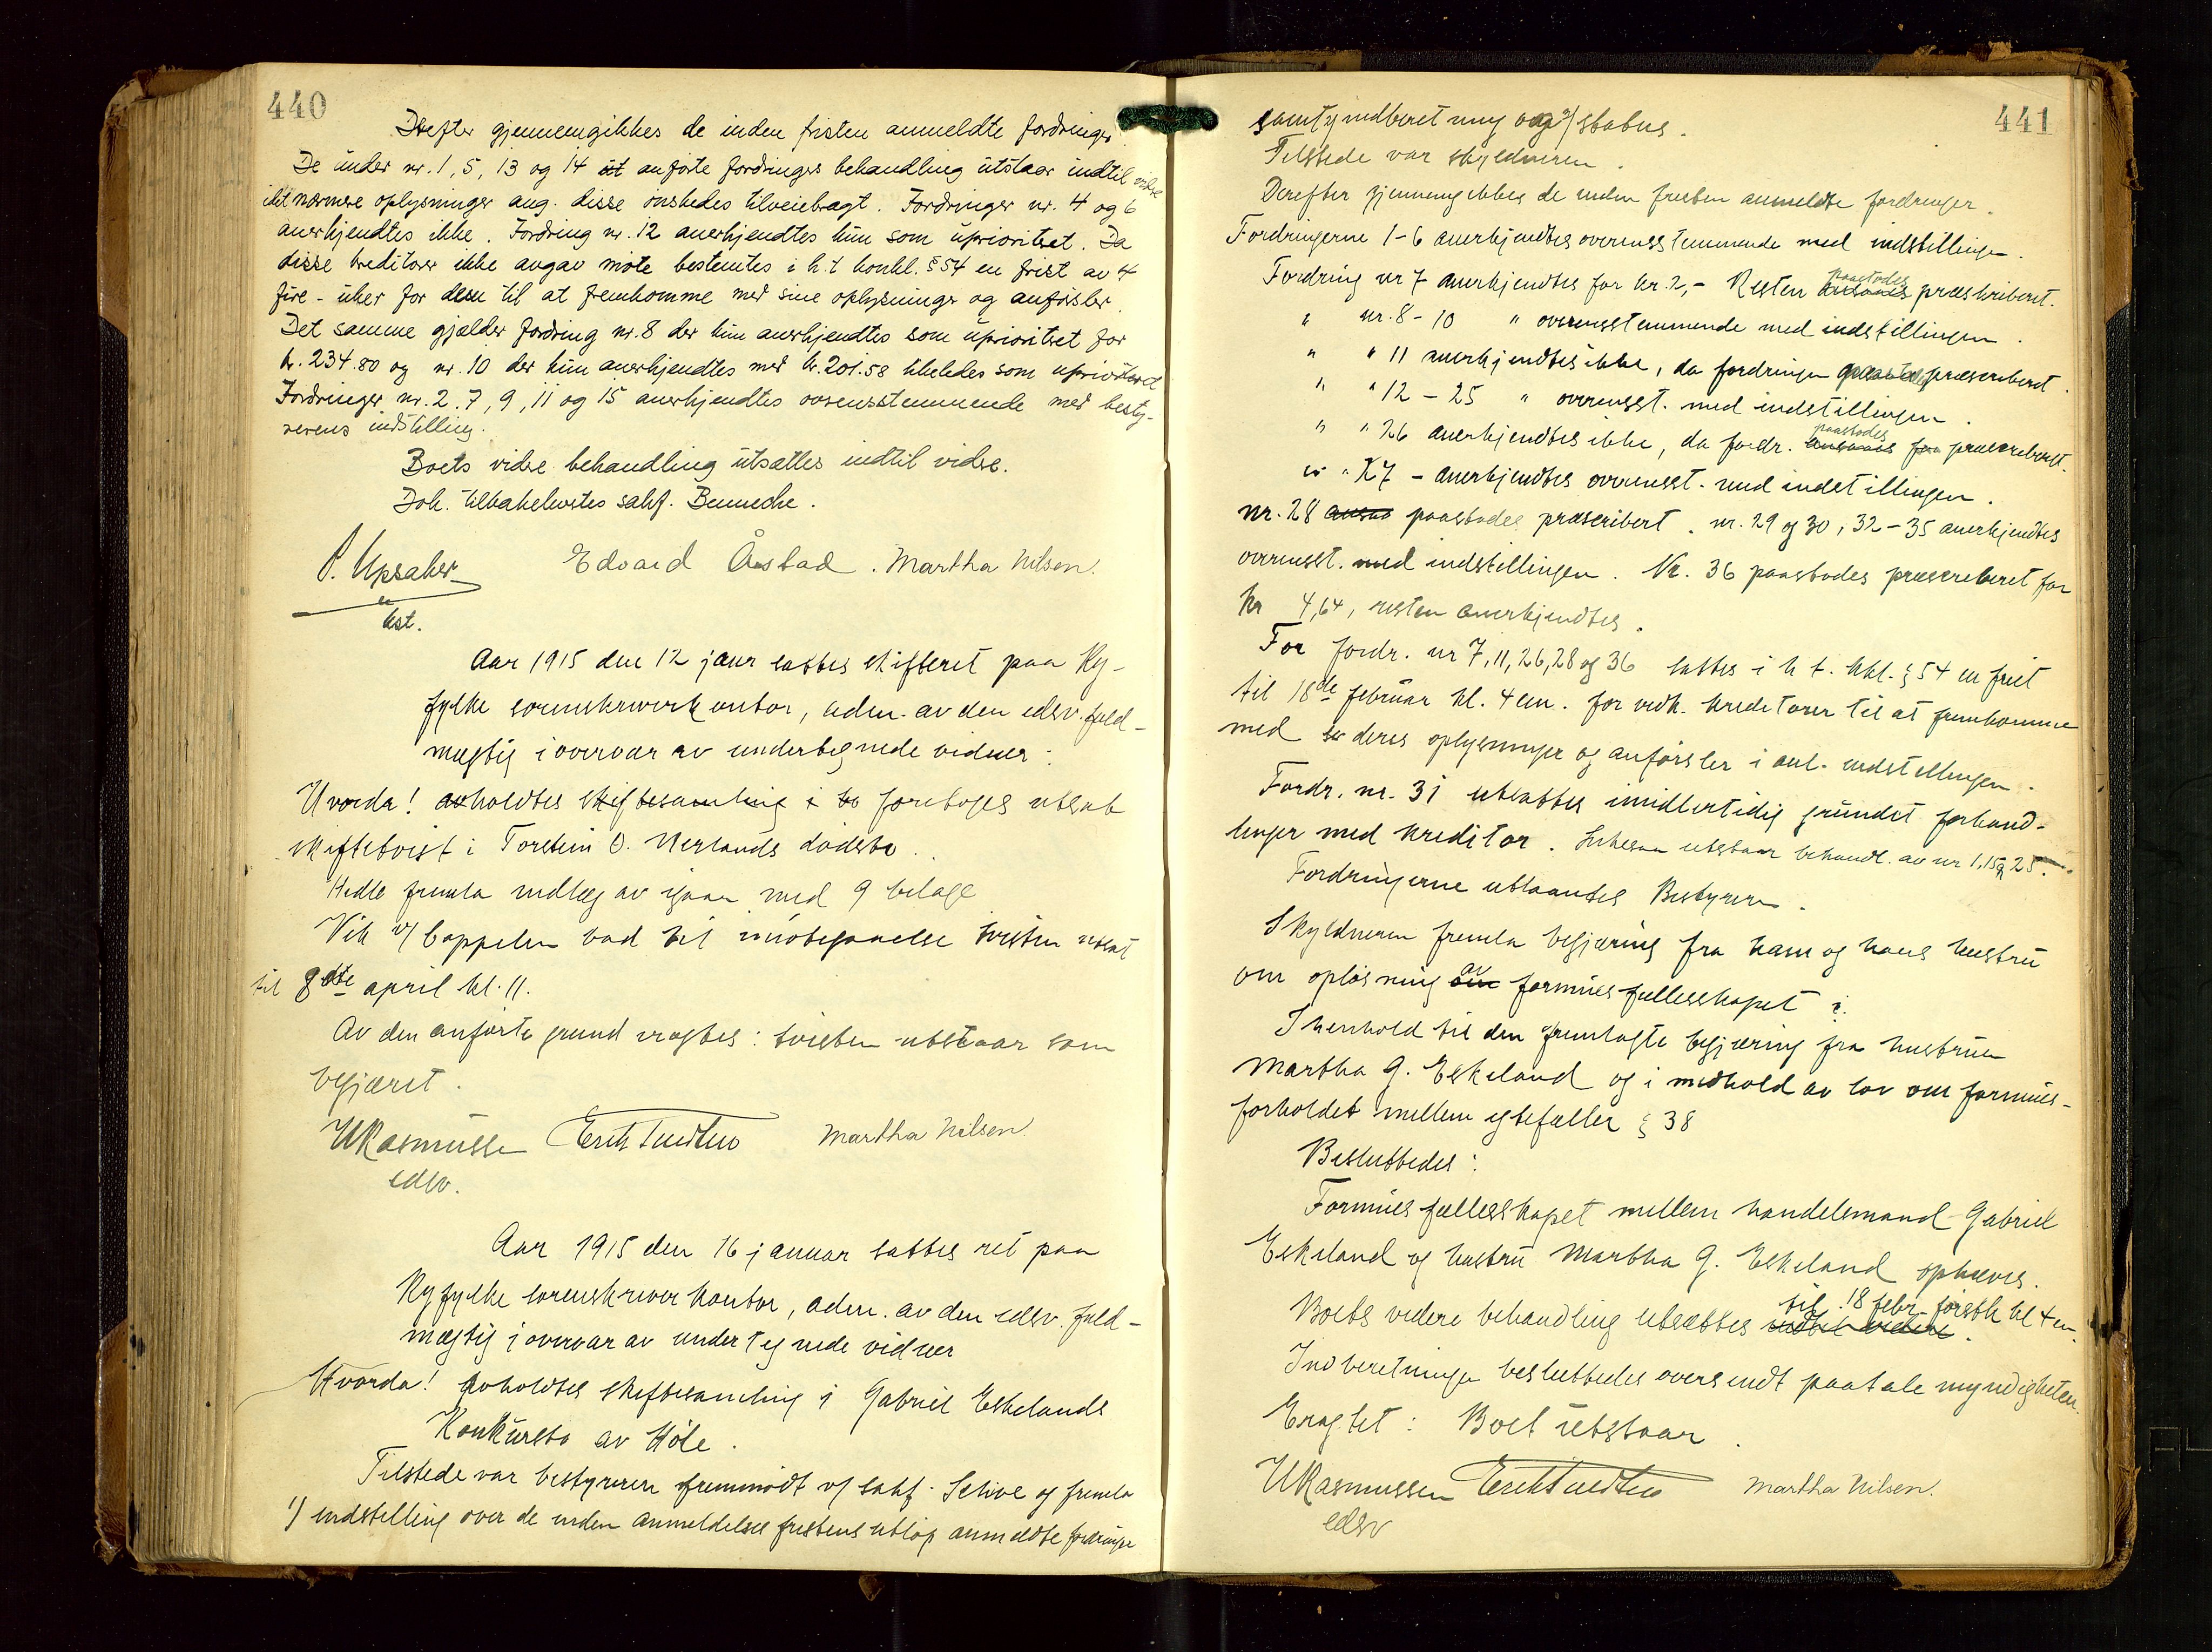 440
Derefter gjennemgikkes de inden fristen anmeldte fordringer.
De under nr. 1, 5, 13 og 14 ut anførte fordringers behandling utstaar indtil vidre
idet nærmere oplysninger ang. disse ønskedes tilveiebragt. Fordringer nr. 4 og 6
anerkjendtes ikke. Fordring nr. 12 anerkjendtes kun som uprioritert. Da
disse kreditorer ikke avgav møte bestemtes i h.t konkl. § 54 en frist av 4
fire - uker for dem til at fremkomme med sine oplysninger og anførsler.
Det samme gjælder fordring nr. 8 der kun anerkjendtes som uprioritert for
kr. 234.80 og nr. 10 der kun anerkjendtes med kr. 201.58 likeledes som uprioritert
Fordringer nr. 2, 7, 9, 11 og 15 anerkjendtes overensstemmende med besty-
rerens indstilling.
Boets vidre behandling utsættes indtil vidre.
Dok. tilbakelevertes sakf. Bennecke.
P. Upsaker Edvard Åstad. Martha Nilsen.
kst.
Aar 1915 den 12 janr sattes skifteret paa Ry-
fylke sorenskriverkontor, adm. av den edsv. fuld-
mægtig i overvær av undertegnede vidner:
Hvorda! avholdtes skiftesamling i bo foretoges utsat
skiftetvist i Torstein O. Nerlands dødsbo.
Hedle fremla indlæg av igaar med 9 bilage
Vik v/ Cappelen bad til imøtegaaelse tvisten utsat
til 8de april kl. 11.
Av den anførte grund eragtes: tvisten utstaar som
begjæret.
URasmussen Martha Nilsen.
edsv.
Aar 1915 den 16 januar sattes ret paa
Ryfylke sorenskriver kontor, adm. av den edsv. fuld-
mægtig i overvær av undertegnede vidner
Hvorda! avholdtes skiftesamling i Gabriel Eskelands
Konkursbo av Høle.
Tilstede var bestyreren fremmødt v/ sakf. Schive og fremla
1) indstilling over de inden anmeldelses fristens utløp anmeldte fordringer
441
samt indberetning og 2) status.
Tilstede var skyldneren.
Derefter gjennemgikkes de inden fristen anmeldte fordringer.
Fordringerne 1-6 anerkjendtes overensstemmende med indstillingen.
Fordring nr 7 anerkjendtes for kr. 2,- Resten paastodes præskriberet.
" nr. 8 - 10 " overensstemmende med indstillingen.
" " 11 anerkjendtes ikke, da fordringen præscriberet.
" " 12 - 25 " overensst. med indstillingen.
" " 26 anerkjendtes ikke, da fordr. paastodes præscriberet.
" " 27 - anerkjendtes overensst. med indstillingen.
nr. 28 paastodes præscribert. nr. 29 og 30, 32-35 anerkjendtes
overensst. med indstillingen. Nr. 36 paastodes præscriberet for
kr 4,64, resten anerkjendtes.
For fordr. nr 7, 11, 26, 28 og 36 sattes i h t. kkl. § 54 en frist
til 18de februar kl. 4 em. for vedk. kreditorer til at fremkomme
med deres oplysninger og anførsler i anl. indstillingen.
Fordr. nr. 31 utsattes imidlertidig grundet forhand-
linger med kreditor. Likesaa utstaar behandl. av nr 1, 15 og 25.
Fordringerne utlaantes Bestyreren.
Skyldneren fremla begjæring fra ham og hans hustru
om opløsning av formuesfællesskapet.
I henhold til den fremlagte begjæring fra hustruen
Martha G. Eskeland og i medhold av lov om formues-
forholdet mellem egtefæller § 38
Besluttedes:
Formuesfællesskapet mellem handelsmand Gabriel
Eskeland og hustru Martha G. Eskeland ophæves.
Boets videre behandling utsættes indtil videre til 18 febr. førstk kl 4 em.
Indberetningen besluttedes oversendt paatalemyndigheten.
Eragtet: Boet utstaar.
URasmussen Martha Nilsen.
edsv